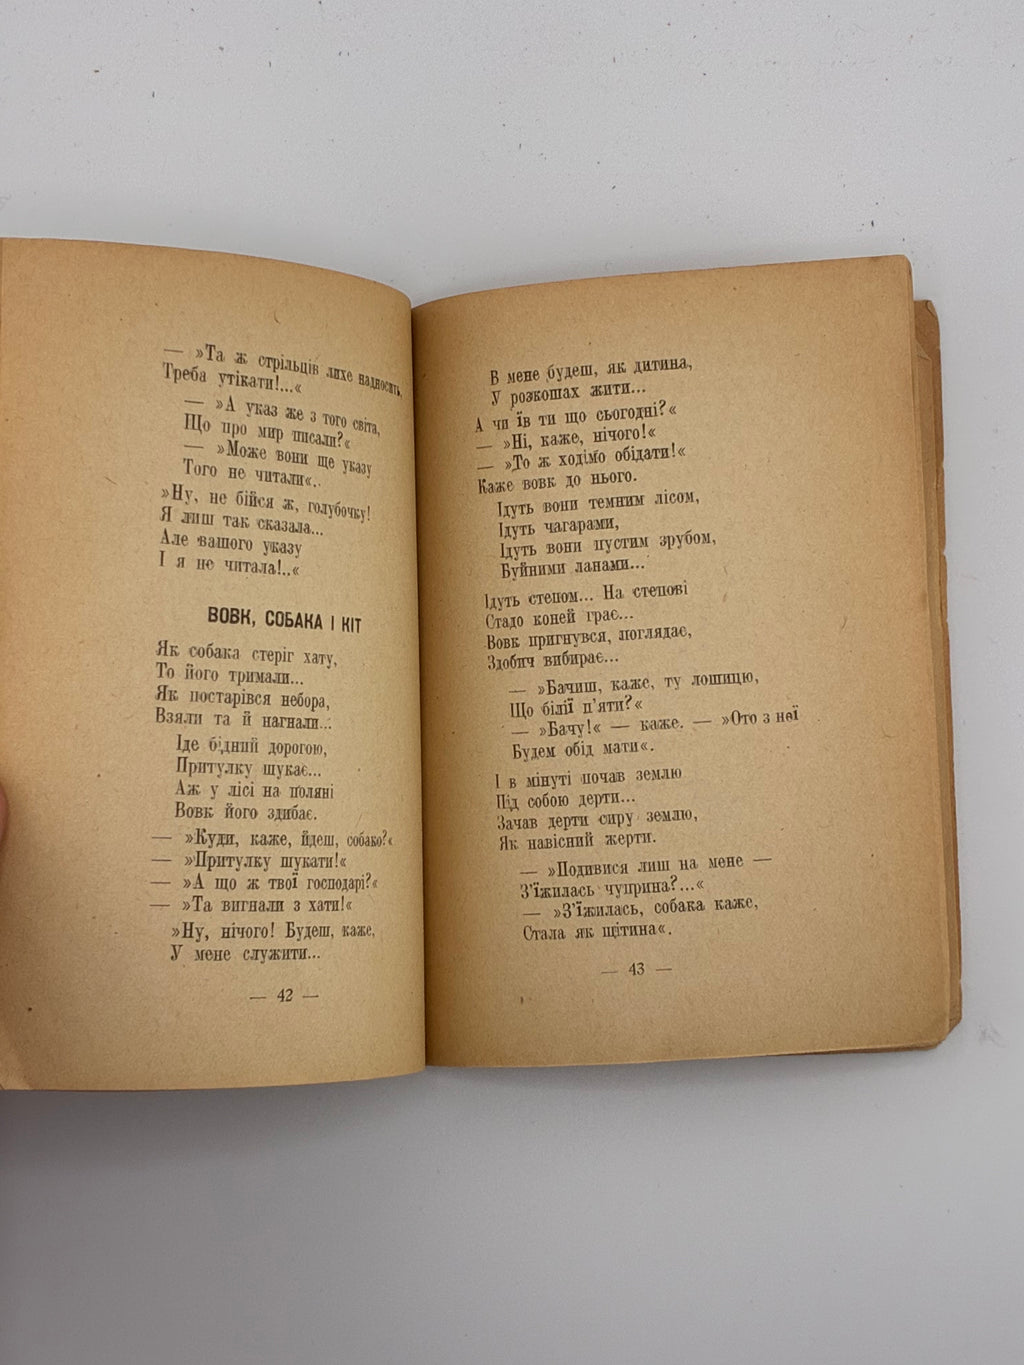 — »Та ж стрільців лихе надносить,
Треба утікати!...«
— »А указ же з того світа,
Що про мир писали?«
— »Може вони ще указу
Того не читали«..
»Ну, не бійся ж, голубочку!
Я лиш так сказала...
Але вашого указу
І я не читала!..«
ВОВК, СОБАКА І КІТ
Як собака стеріг хату,
То його тримали...
Як постарівся небора,
Взяли та й нагнали...
Іде бідний дорогою,
Притулку шукає...
Аж у лісі на поляні
Вовк його здибає.
— »Куди, каже, йдеш, собако?«
— »Притулку шукати!«
— »А що ж твої господарі?«
— »Та вигнали з хати!«
»Ну, нічого! Будеш, каже,
У мене служити...
— 42 —
В мене будеш, як дитина,
У розкошах жити...
А чи їв ти що сьогодні?«
— »Ні, каже, нічого!«
— »То ж ходімо обідати!«
Каже вовк до нього.
Ідуть вони темним лісом,
Ідуть чагарами,
Ідуть вони пустим зрубом,
Буйними ланами...
Ідуть степом... На степові
Стадо коней грає...
Вовк пригнувся, поглядає,
Здобич вибирає...
— »Бачиш, каже, ту лошицю,
Що білії п'яти?«
— »Бачу!« — каже. — »Ото з неї
Будем обід мати«.
І в мінуті почав землю
Під собою дерти...
Зачав дерти сиру землю,
Як навісний жерти.
— »Подивися лиш на мене —
З'їжилась чуприна?...«
— »З'їжилась, собака каже,
Стала як щітина«.
— 43 —